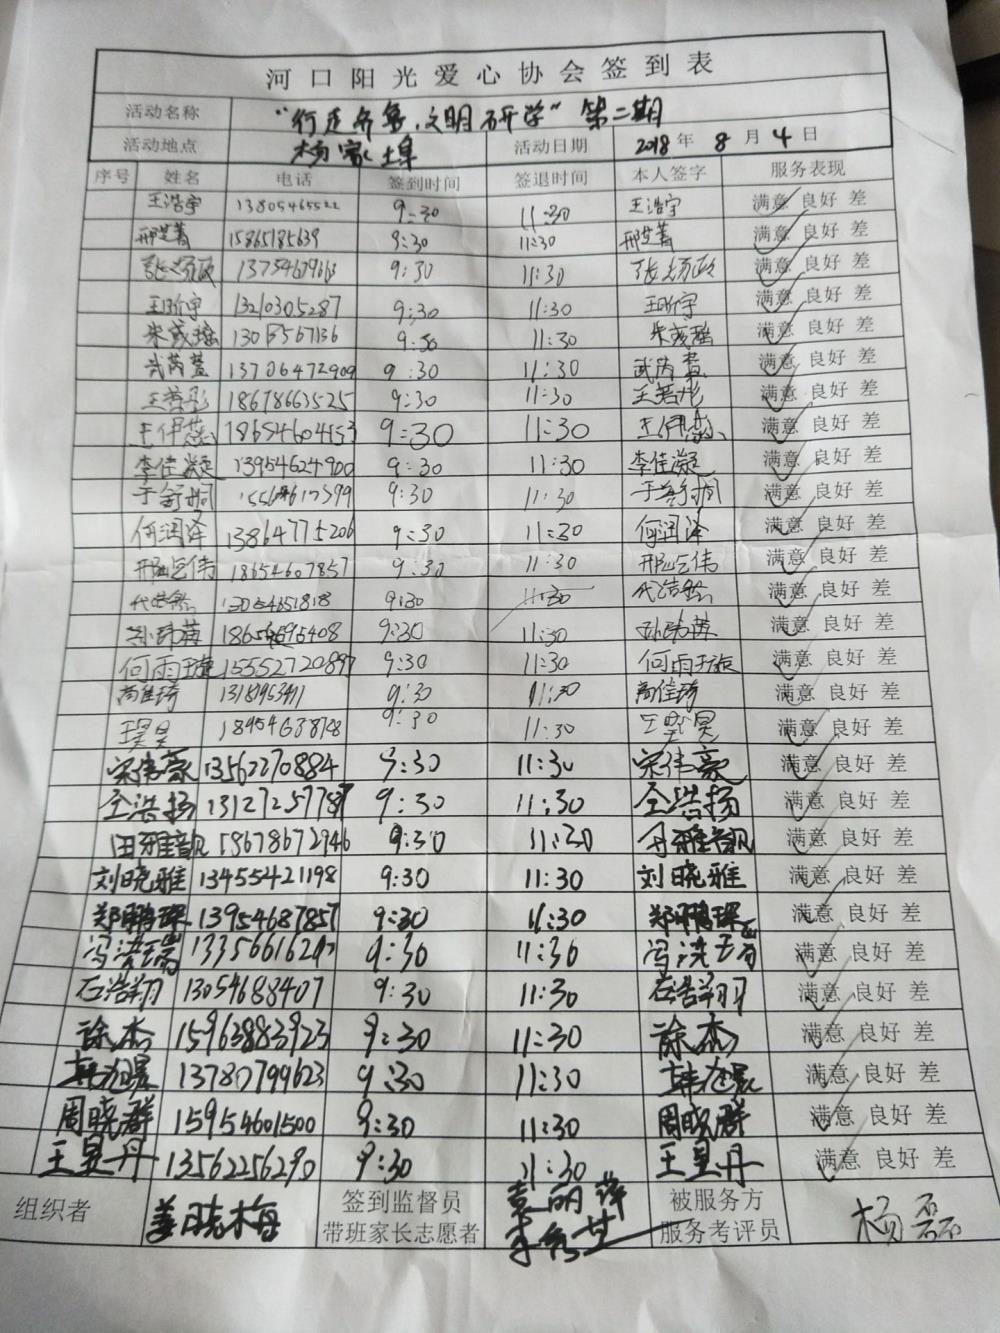 河口阳光爱心协会签到表
活动名称 "行走齐鲁·文明研学"第二期
活动地点 杨家埠 活动日期 2018年 8月 4日
序号 姓名 电话 签到时间 签退时间 本人签字 服务表现
王浩宇 13805465522 9:30 11:30 王浩宇 满意 良好 差
邢芷菁 15865185639 9:30 11:30 邢芷菁 满意 良好 差
9:30 11:30 满意 良好 差
王昕宇 13210305287 9:30 11:30 王昕宇 满意 良好 差
9:30 11:30 满意 良好 差
武芮萱 13706472909 9:30 11:30 武芮萱 满意 良好 差
王若彤 18678663525 9:30 11:30 王若彤 满意 良好 差
王伊蕊 18654604153 9:30 11:30 王伊蕊 满意 良好 差
李佳凝 13954624900 9:30 11:30 李佳凝 满意 良好 差
9:30 11:30 满意 良好 差
何润泽 13864775206 9:30 11:30 何润泽 满意 良好 差
18654607857 9:30 11:30 满意 良好 差
9:30 11:30 满意 良好 差
9:30 11:30 满意 良好 差
何雨璇 15552720897 9:30 11:30 何雨璇 满意 良好 差
高佳琦 9:30 11:30 高佳琦 满意 良好 差
18954638798 9:30 11:30 满意 良好 差
宋伟豪 13562270884 9:30 11:30 宋伟豪 满意 良好 差
仝浩扬 13127257787 9:30 11:30 仝浩扬 满意 良好 差
田雅靓 15678672946 9:30 11:30 满意 良好 差
刘晓雅 13455421198 9:30 11:30 刘晓雅 满意 良好 差
郑鹏琛 13954687857 9:30 11:30 郑鹏琛 满意 良好 差
9:30 11:30 满意 良好 差
石浩翔 13054688407 9:30 11:30 石浩翔 满意 良好 差
徐杰 15963883923 9:30 11:30 徐杰 满意 良好 差
13780799623 9:30 11:30 满意 良好 差
周晓群 15954601500 9:30 11:30 周晓群 满意 良好 差
王昱丹 13562256290 9:30 11:30 王昱丹 满意 良好 差
组织者 姜晓梅 签到监督员 袁丽萍 被服务方 杨磊
带班家长志愿者 服务考评员